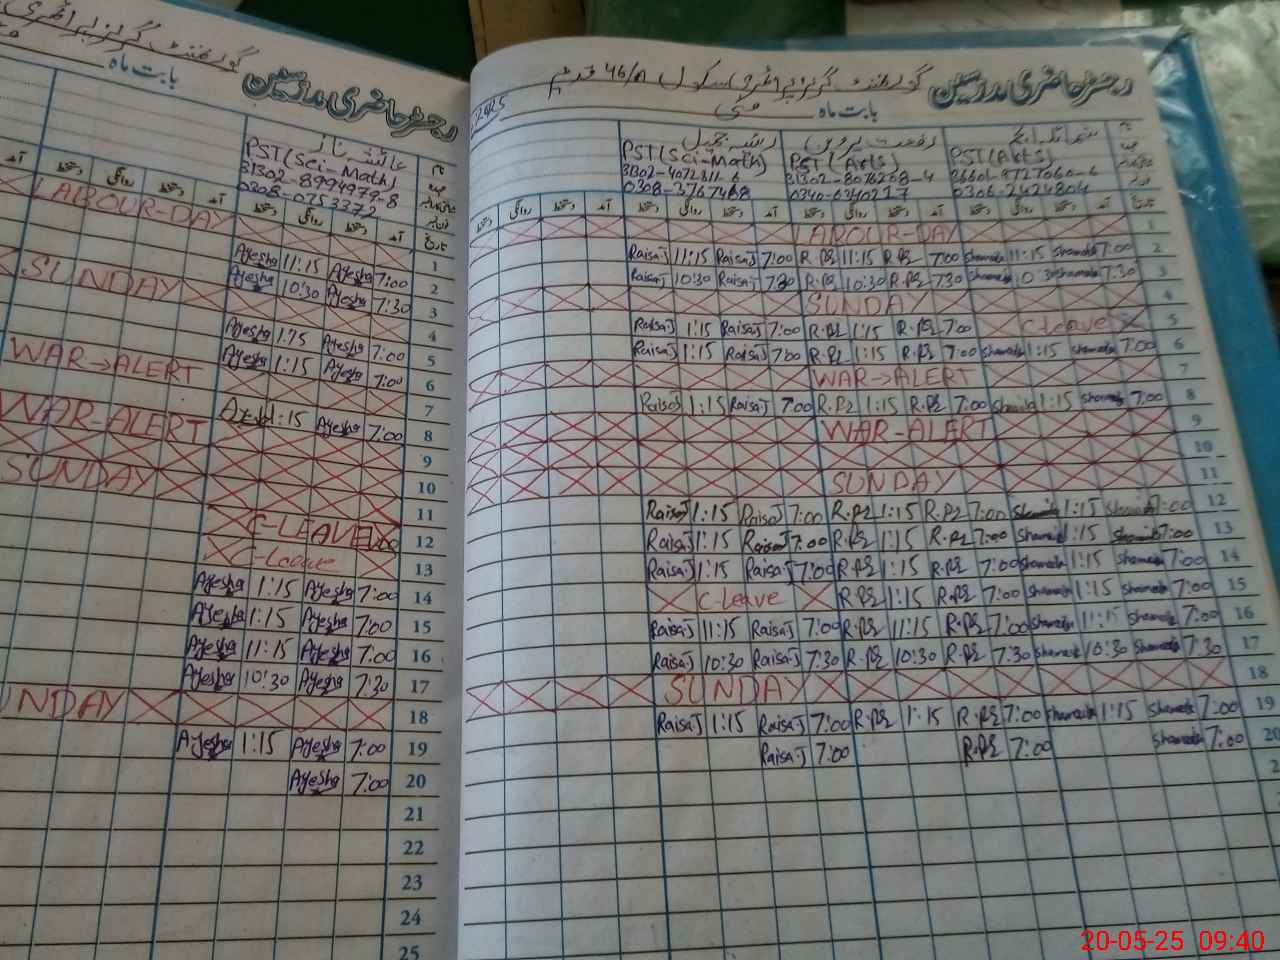 رجسٹر حاضری مدرسین
گورنمنٹ گرلز پرائمری
بابت ماہ
عائشہ ناز
PST(Sci-Math)
31302-8994979-8
0308-0753372
LABOUR-DAY 1
Ayesha 11:15 Ayesha 7:00 2
Ayesha 10:30 Ayesha 7:30 3
SUNDAY 4
Ayesha 1:15 Ayesha 7:00 5
Ayesha 1:15 Ayesha 7:00 6
WAR→ALERT 7
1:15 Ayesha 7:00 8
WAR-ALERT 9
10
SUNDAY 11
C-LEAVE 12
C-Leave 13
Ayesha 1:15 Ayesha 7:00 14
Ayesha 1:15 Ayesha 7:00 15
Ayesha 11:15 Ayesha 7:00 16
Ayesha 10:30 Ayesha 7:30 17
UNDAY 18
Ayesha 1:15 Ayesha 7:00 19
Ayesha 7:00 20
21
22
23
24
25
رجسٹر حاضری مدرسین
گورنمنٹ گرلز پرائمری سکول 46/A قدیم
بابت ماہ مئی
2025
PST(Sci-Math) PST(Arts) PST(Arts)
31302-8076268-4
0340-6340217 0306-2424804
LABOUR-DAY 1
RaisaJ 11:15 RaisaJ 7:00 R.PZ 11:15 R.PZ 7:00 Shamaila 11:15 Shamaila 7:00 2
RaisaJ 10:30 RaisaJ 7:30 R.PZ 10:30 R.PZ 7:30 Shamaila 10:30 Shamaila 7:30 3
SUNDAY 4
RaisaJ 1:15 RaisaJ 7:00 R.PZ 1:15 R.PZ 7:00 C-Leave 5
RaisaJ 1:15 RaisaJ 7:00 R.PZ 1:15 R.PZ 7:00 Shamaila 1:15 Shamaila 7:00 6
WAR→ALERT 7
RaisaJ 1:15 RaisaJ 7:00 R.PZ 1:15 R.PZ 7:00 Shamaila 1:15 Shamaila 7:00 8
WAR-ALERT 9
10
SUNDAY 11
RaisaJ 1:15 RaisaJ 7:00 R.PZ 1:15 R.PZ 7:00 Shamaila 1:15 Shamaila 7:00 12
RaisaJ 1:15 RaisaJ 7:00 R.PZ 1:15 R.PZ 7:00 Shamaila 1:15 Shamaila 7:00 13
RaisaJ 1:15 RaisaJ 7:00 R.PZ 1:15 R.PZ 7:00 Shamaila 1:15 Shamaila 7:00 14
C-Leave R.PZ 1:15 R.PZ 7:00 Shamaila 1:15 Shamaila 7:00 15
RaisaJ 11:15 RaisaJ 7:00 R.PZ 11:15 R.PZ 7:00 Shamaila 11:15 Shamaila 7:00 16
RaisaJ 10:30 RaisaJ 7:30 R.PZ 10:30 R.PZ 7:30 Shamaila 10:30 Shamaila 7:30 17
SUNDAY 18
RaisaJ 1:15 RaisaJ 7:00 R.PZ 1:15 R.PZ 7:00 Shamaila 1:15 Shamaila 7:00 19
RaisaJ 7:00 R.PZ 7:00 Shamaila 7:00 20
20-05-25 09:40